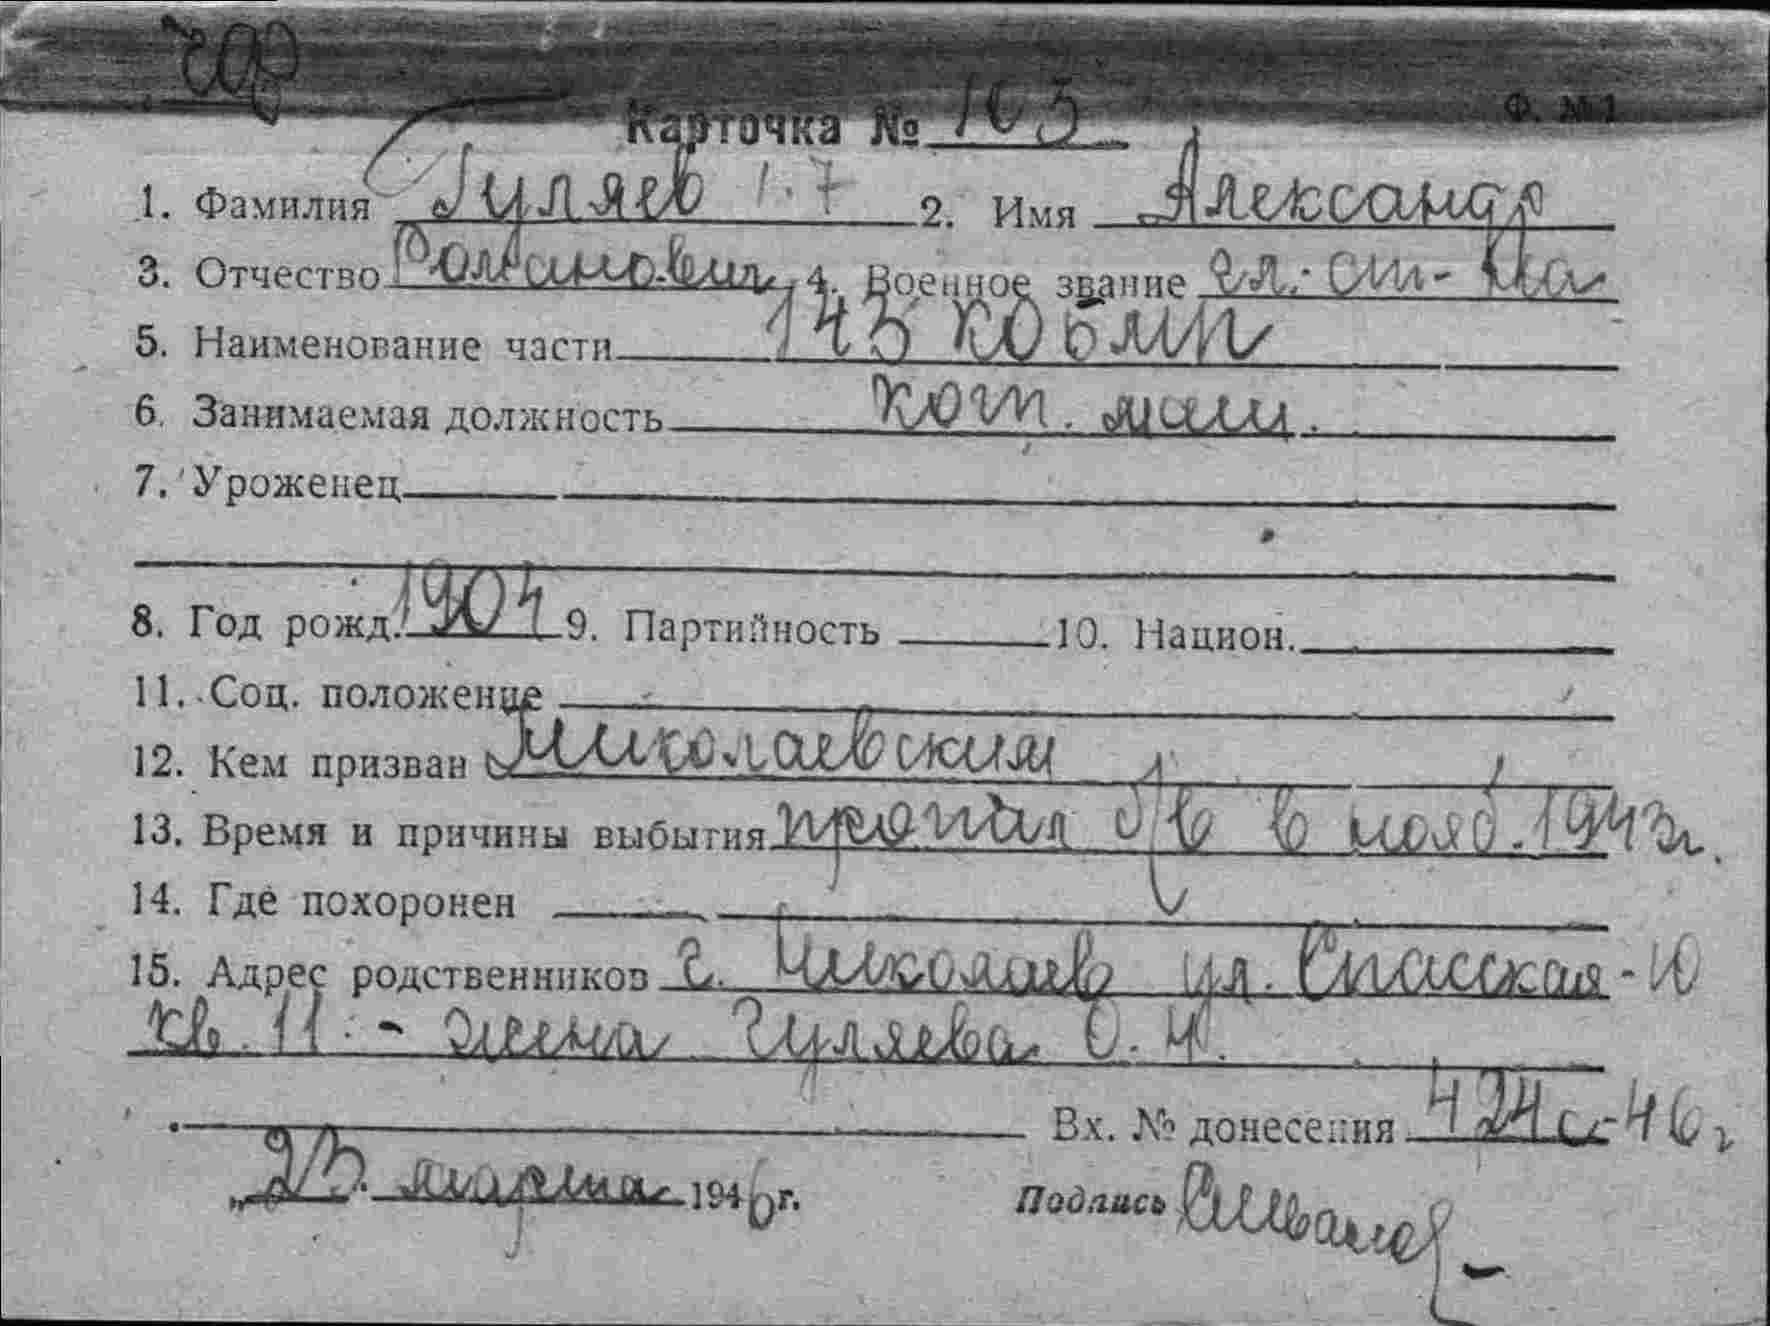 Ф. № 1
Карточка № 103
1. Фамилия Гуляев 1.7 2. Имя Александр
3. Отчество Романович 4. Военное звание гл. ст-на
5. Наименование части 143 КОБМП
6. Занимаемая должность кот. маш.
7. Уроженец
8. Год рожд. 1904 9. Партийность 10. Национ.
11. Соц. положение
12. Кем призван Николаевским
13. Время и причины выбытия пропал б/в в нояб. 1943 г.
14. Где похоронен
15. Адрес родственников г. Николаев ул. Спасская - 10
кв. 11 - жена Гуляева О. И.
Вх. № донесения 424с-46 г
„23. марта 1946 г. Подпись